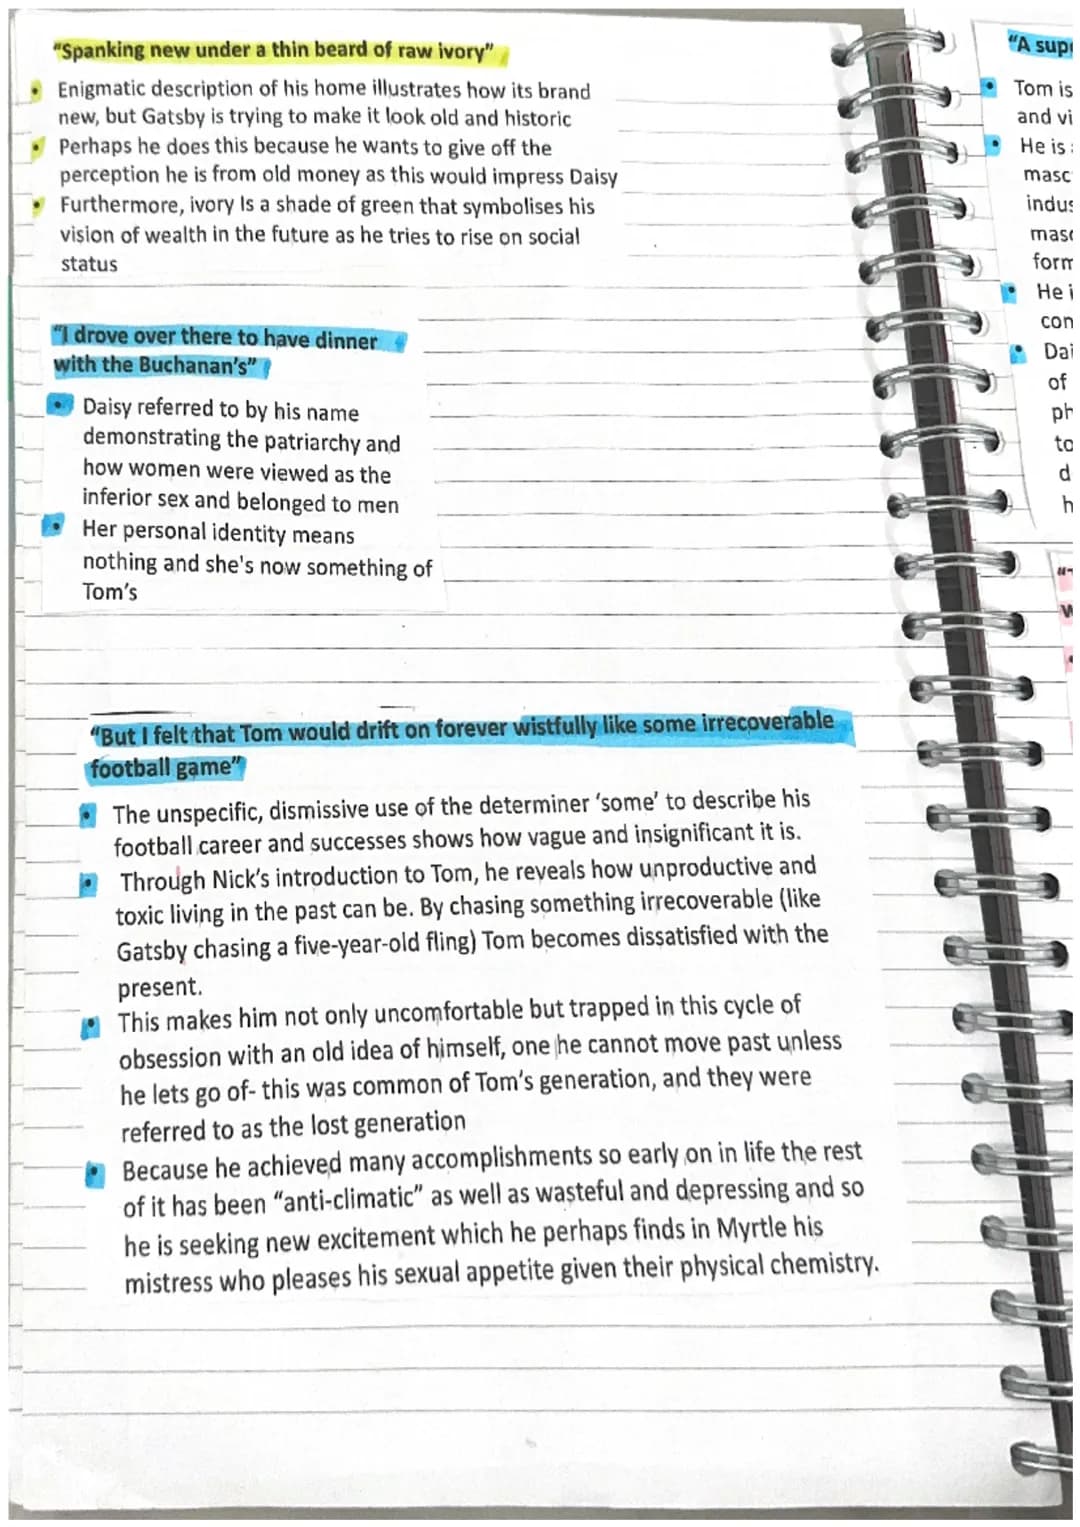 "Spanking new under a thin beard of raw ivory"
Enigmatic description of his home illustrates how its brand
new, but Gatsby is trying to make it look old and historic
Perhaps he does this because he wants to give off the
perception he is from old money as this would impress Daisy
Furthermore, ivory Is a shade of green that symbolises his
vision of wealth in the future as he tries to rise on social
status
"I drove over there to have dinner
with the Buchanan's"
Daisy referred to by his name
demonstrating the patriarchy and
how women were viewed as the
inferior sex and belonged to men
Her personal identity means
nothing and she's now something of
Tom's
"But I felt that Tom would drift on forever wistfully like some irrecoverable
football game"
The unspecific, dismissive use of the determiner 'some' to describe his
football career and successes shows how vague and insignificant it is.
Through Nick's introduction to Tom, he reveals how unproductive and
toxic living in the past can be. By chasing something irrecoverable (like
Gatsby chasing a five-year-old fling) Tom becomes dissatisfied with the
present.
This makes him not only uncomfortable but trapped in this cycle of
obsession with an old idea of himself, one he cannot move past unless
he lets go of- this was common of Tom's generation, and they were
referred to as the lost generation
Because he achieved many accomplishments so early on in life the rest
of it has been "anti-climatic" as well as wasteful and depressing and so
he is seeking new excitement which he perhaps finds in Myrtle his
mistress who pleases his sexual appetite given their physical chemistry.
"A
Tom is
and
He is
He
of
to